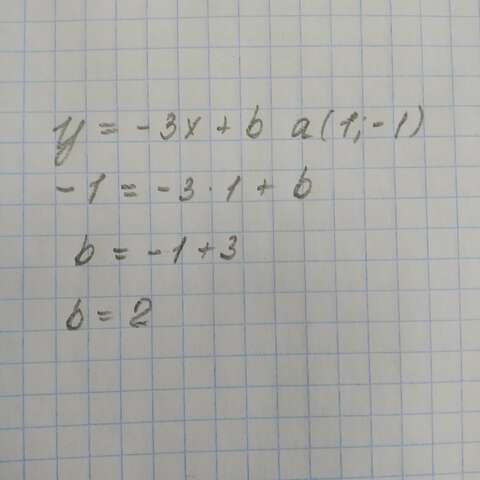 y = -3x + b a(1;-1)
-1 = -3·1 + b
b = -1+3
b = 2